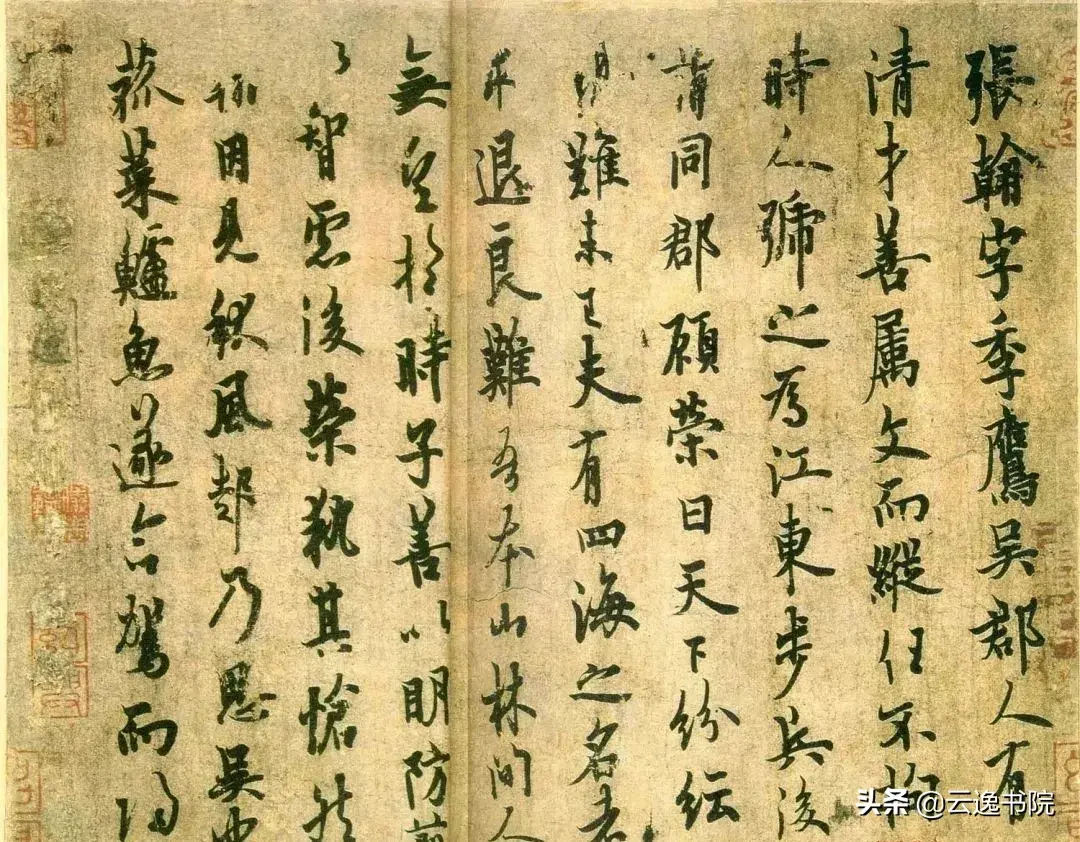 張翰字季鷹吳郡人有
清才善屬文而縱任不拘
時人號之為江東步兵後
謂同郡顧榮曰天下紛紜
難未已夫有四海之名者
求退良難吾本山林間人
無望於時子善以明防前
以智慮後榮執其愴然
翰因見秋風起乃思吳中
菰菜鱸魚遂命駕而歸
头条 @云逸书院